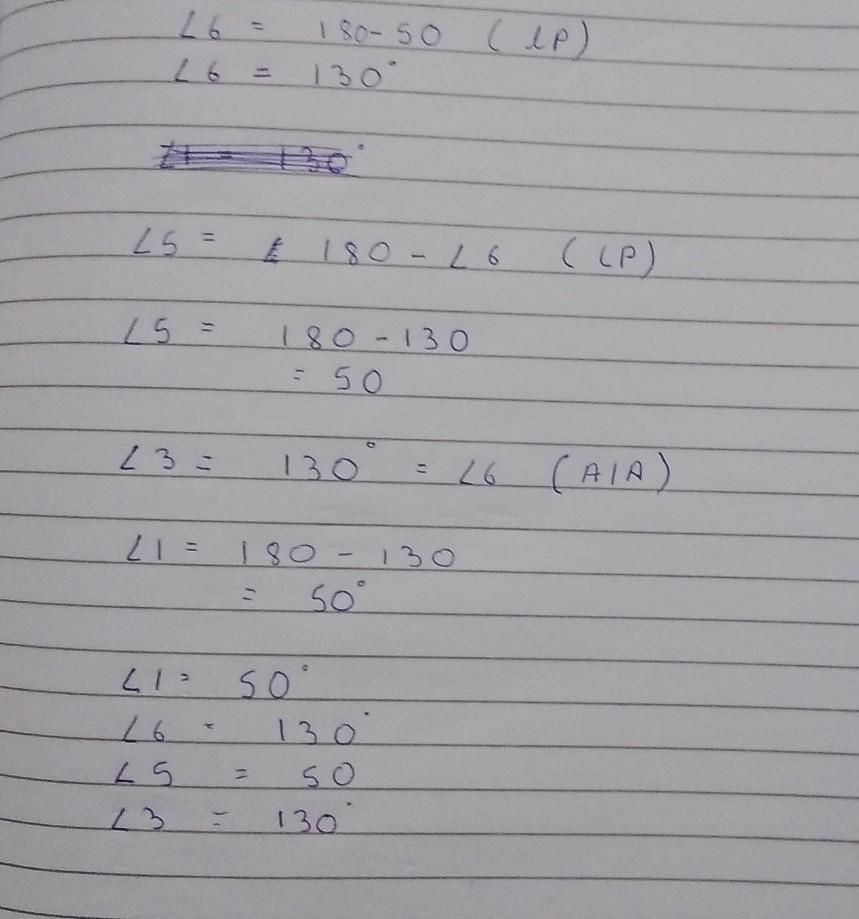 ∠6 = 180-50 (LP)
∠6 = 130°
∠1 = 130°
∠5 = 180 - ∠6 (LP)
∠5 = 180 - 130
= 50
∠3 = 130° = ∠6 (AIA)
∠1 = 180 - 130
= 50°
∠1 = 50°
∠6 = 130°
∠5 = 50
∠3 = 130°